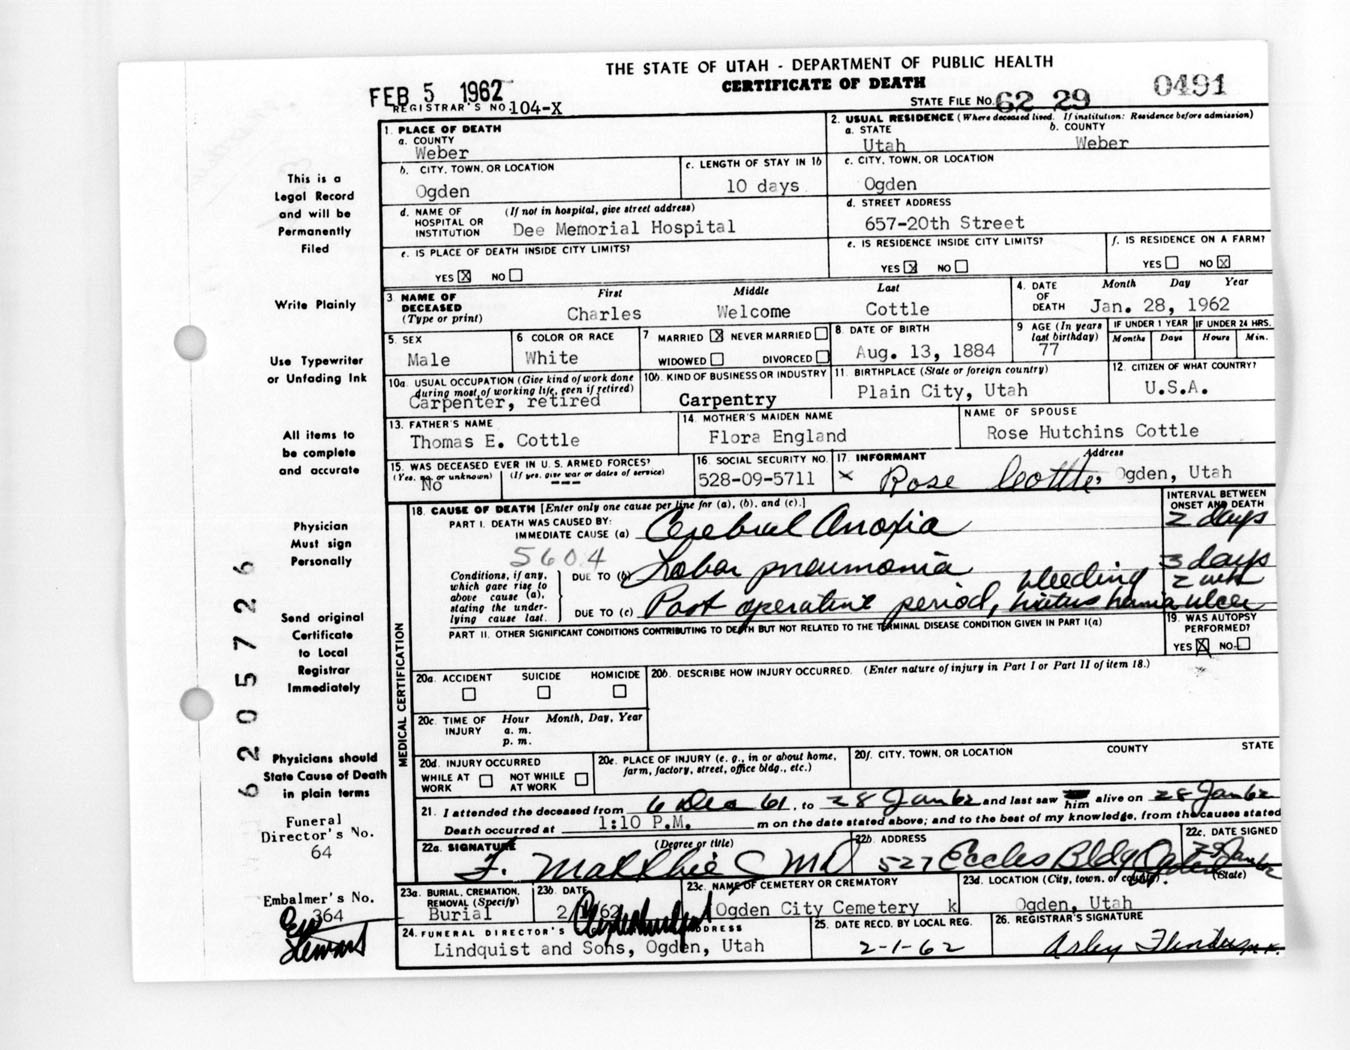 THE STATE OF UTAH - DEPARTMENT OF PUBLIC HEALTH
CERTIFICATE OF DEATH
FEB 5 1962
REGISTRAR'S NO. 104-X
STATE FILE NO. 62 29 0491
This is a
Legal Record
and will be
Permanently
Filed
Write Plainly
Use Typewriter
or Unfading Ink
All items to
be complete
and accurate
Physician
Must sign
Personally
Send original
Certificate
to Local
Registrar
Immediately
Physicians should
State Cause of Death
in plain terms
Funeral
Director's No.
64
Embalmer's No.
364
6205726
1. PLACE OF DEATH
a. COUNTY
Weber
2. USUAL RESIDENCE (Where deceased lived. If institution: Residence before admission)
a. STATE b. COUNTY
Utah Weber
b. CITY, TOWN, OR LOCATION
Ogden
c. LENGTH OF STAY IN 1b
10 days
c. CITY, TOWN, OR LOCATION
Ogden
d. NAME OF (If not in hospital, give street address)
HOSPITAL OR
INSTITUTION Dee Memorial Hospital
d. STREET ADDRESS
657-20th Street
e. IS PLACE OF DEATH INSIDE CITY LIMITS?
YES X NO
e. IS RESIDENCE INSIDE CITY LIMITS?
YES X NO
f. IS RESIDENCE ON A FARM?
YES NO X
3 NAME OF First Middle Last
DECEASED
(Type or print) Charles Welcome Cottle
4. DATE Month Day Year
OF
DEATH Jan. 28, 1962
5. SEX
Male
6 COLOR OR RACE
White
7 MARRIED X NEVER MARRIED
WIDOWED DIVORCED
8. DATE OF BIRTH
Aug. 13, 1884
9 AGE (In years
last birthday)
77
IF UNDER 1 YEAR IF UNDER 24 HRS.
Months Days Hours Min.
10a. USUAL OCCUPATION (Give kind of work done
during most of working life, even if retired)
Carpenter, retired
10b. KIND OF BUSINESS OR INDUSTRY
Carpentry
11. BIRTHPLACE (State or foreign country)
Plain City, Utah
12. CITIZEN OF WHAT COUNTRY?
U.S.A.
13. FATHER'S NAME
Thomas E. Cottle
14. MOTHER'S MAIDEN NAME
Flora England
NAME OF SPOUSE
Rose Hutchins Cottle
15. WAS DECEASED EVER IN U.S. ARMED FORCES?
(Yes, no, or unknown) (If yes, give war or dates of service)
No ---
16. SOCIAL SECURITY NO.
528-09-5711
17. INFORMANT Address
x Rose Cottle, Ogden, Utah
MEDICAL CERTIFICATION
18. CAUSE OF DEATH [Enter only one cause per line for (a), (b), and (c).]
INTERVAL BETWEEN
ONSET AND DEATH
PART I. DEATH WAS CAUSED BY:
IMMEDIATE CAUSE (a) Cerebral Anoxia 2 days
5604
Conditions, if any,
which gave rise to
above cause (a),
stating the under-
lying cause last.
DUE TO (b) Lobar pneumonia 3 days
DUE TO (c) Post operative period, bleeding hiatus hernia ulcer 2 wk
PART II. OTHER SIGNIFICANT CONDITIONS CONTRIBUTING TO DEATH BUT NOT RELATED TO THE TERMINAL DISEASE CONDITION GIVEN IN PART I(a)
19. WAS AUTOPSY
PERFORMED?
YES X NO
20a. ACCIDENT SUICIDE HOMICIDE
20b. DESCRIBE HOW INJURY OCCURRED. (Enter nature of injury in Part I or Part II of item 18.)
20c. TIME OF Hour Month, Day, Year
INJURY a. m.
p. m.
20d. INJURY OCCURRED
WHILE AT NOT WHILE
WORK AT WORK
20e. PLACE OF INJURY (e. g., in or about home,
farm, factory, street, office bldg., etc.)
20f. CITY, TOWN, OR LOCATION COUNTY STATE
21. I attended the deceased from 6 Dec 61, to 28 Jan 62 and last saw him alive on 28 Jan 62
Death occurred at 1:10 P.M. m on the date stated above; and to the best of my knowledge, from the causes stated
22a. SIGNATURE (Degree or title)
22b. ADDRESS
527 Eccles Bldg Ogden
22c. DATE SIGNED
28 Jan 62
(City) (State)
23a. BURIAL, CREMATION,
REMOVAL (Specify)
Burial
23b. DATE
2/1/62
23c. NAME OF CEMETERY OR CREMATORY
Ogden City Cemetery k
23d. LOCATION (City, town, or county) (State)
Ogden, Utah
24. FUNERAL DIRECTOR'S ADDRESS
Lindquist and Sons, Ogden, Utah
25. DATE RECD. BY LOCAL REG.
2-1-62
26. REGISTRAR'S SIGNATURE